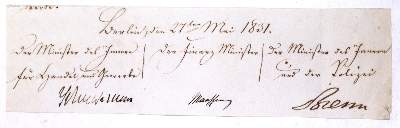 Berlin den 27ten Mai 1831.
Der Minister des Innern Der Finanz Minister Der Minister des Innern
für Handel und Gewerbe und der Polizei
Schuckmann Maassen Brenn